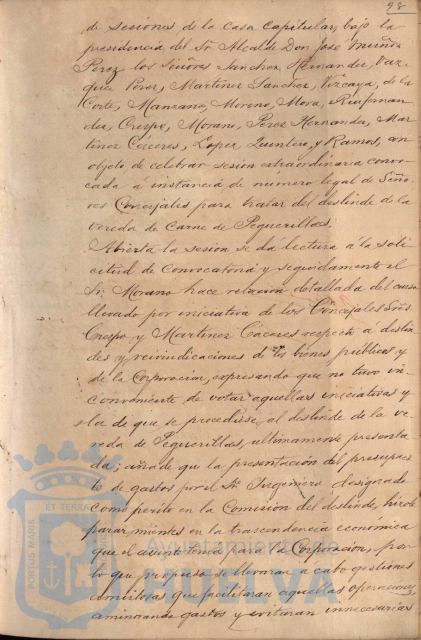 98
de sesiones de la casa Capitular, bajo la
presidencia del Sr Alcalde Don Jose Muñoz
Perez los Señores Sanchez Hernandez, Vaz-
quez Perez, Martinez Sanchez, Vizcaya, de la
Corte, Manzano, Moreno, Mora,
Crespo, Morano, Perez Hernandez, Mar-
tinez Cáceres, Lopez Quintero, y Ramos, con
objeto de celebrar sesion extraordinaria convo-
cada á instancia de numero legal de Seño-
res Concejales para tratar del deslinde de la
vereda de Carne de Peguerillas.
Abierta la sesion se dá lectura á la soli-
citud de Convocatoria y seguidamente el
Sr Morano hace relacion detallada del curso
llevado por iniciativa de los Concejales Sres
Crespo y Martinez Cáceres respecto a deslin-
des y reivindicaciones de los bienes publicos y
de la Corporacion, expresando que no tuvo in-
conveniente de votar aquellas iniciativas y
la de que se procediese al deslinde de la ve-
reda de Peguerillas, ultimamente presenta-
da; añade que la presentacion del presupues-
to de gastos por el Sr Ingeniero designado
como perito en la Comision del deslinde, hizole
parar mientes en la trascendencia economica
que el asunto tenia para la Corporacion, por
lo que propuso se llevaran a cabo gestiones
amistosas que facilitaran aquellas operaciones,
aminorando gastos y evitaran innecesarias
PORTUS MARIS
ET TERRAE
Ayuntamiento de
HUELVA